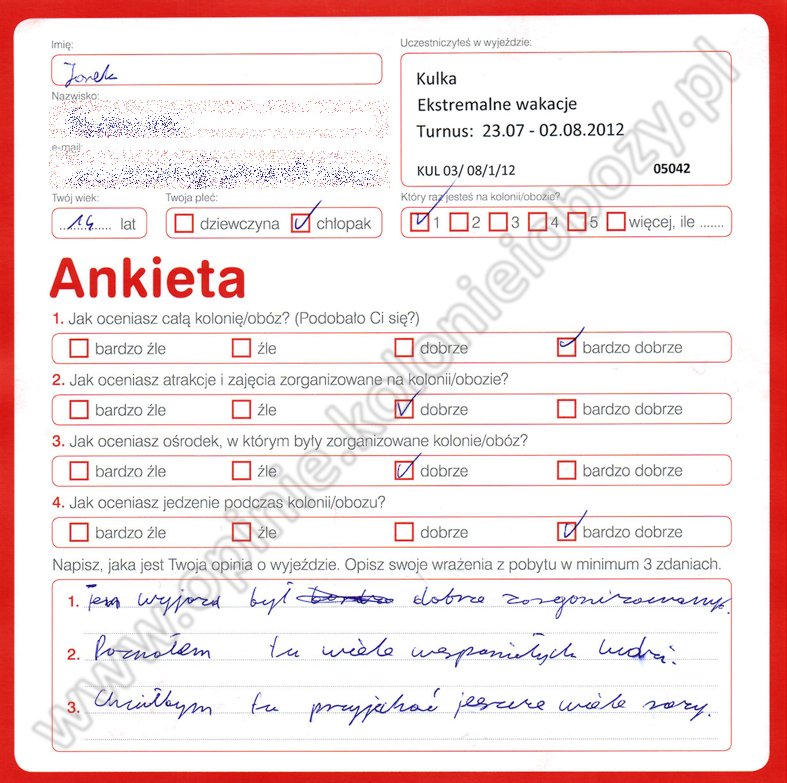 Imię:
Uczestniczyłeś w wyjeździe:
Janek
Kulka
Ekstremalne wakacje
Turnus: 23.07 - 02.08.2012
KUL 03/ 08/1/12 05042
Nazwisko:
e-mail:
Twój wiek: Twoja płeć: Który raz jesteś na kolonii/obozie?
14 lat dziewczyna chłopak 1 2 3 4 5 więcej, ile .......
Ankieta
1. Jak oceniasz całą kolonię/obóz? (Podobało Ci się?)
bardzo źle źle dobrze bardzo dobrze
2. Jak oceniasz atrakcje i zajęcia zorganizowane na kolonii/obozie?
bardzo źle źle dobrze bardzo dobrze
3. Jak oceniasz ośrodek, w którym były zorganizowane kolonie/obóz?
bardzo źle źle dobrze bardzo dobrze
4. Jak oceniasz jedzenie podczas kolonii/obozu?
bardzo źle źle dobrze bardzo dobrze
Napisz, jaka jest Twoja opinia o wyjeździe. Opisz swoje wrażenia z pobytu w minimum 3 zdaniach.
1. Ten wyjazd był dobrze zorganizowany.
2. Poznałem tu wiele wspaniałych ludzi.
3. Chciałbym tu przyjechać jeszcze wiele razy.
www.opinie.kolonieiobozy.pl